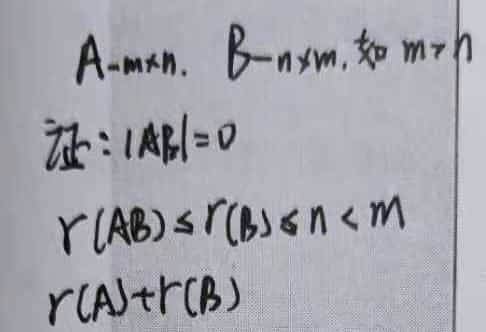 A-m×n. B-n×m. 如 m>n
证:|AB|=0
r(AB)≤r(B)≤n<m
r(A)+r(B)